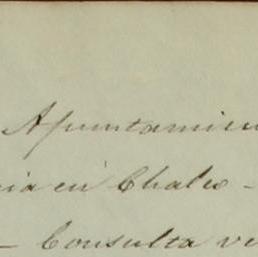 Apuntamien
cia en Chalco -
- Consulta ve